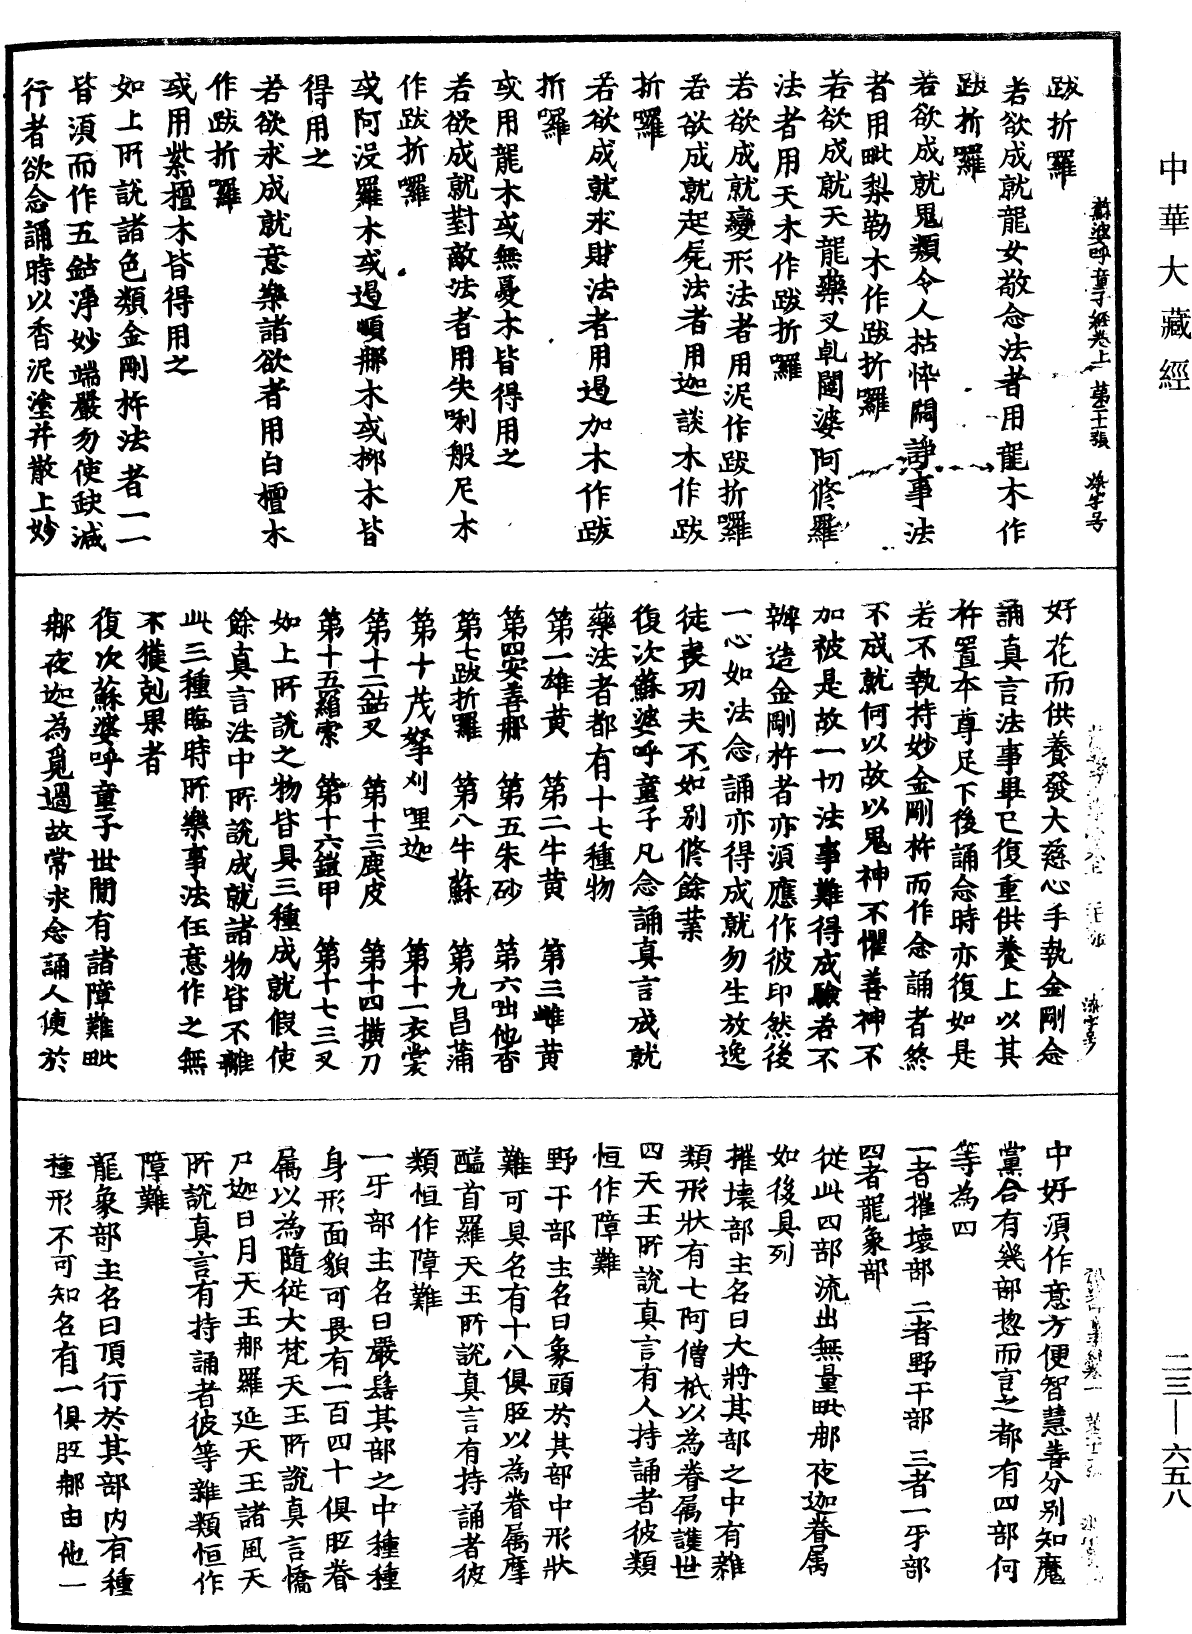 中華大藏經
蘇婆呼童子經卷上 第二十張 染字号
跋折囉
若欲成就龍女敬念法者用龍木作
跋折囉
若欲成就鬼類令人枯悴鬪諍事法
者用毗梨勒木作跋折囉
若欲成就天龍藥叉乹闥婆阿修羅
法者用天木作跋折囉
若欲成就變形法者用泥作跋折囉
若欲成就起屍法者用迦談木作跋
折囉
若欲成就求財法者用遏加木作跋
折囉
或用龍木或無憂木皆得用之
若欲成就對敵法者用失唎般尼木
作跋折囉
或阿没羅木或遏順那木或柳木皆
得用之
若欲求成就意樂諸欲者用白檀木
作跋折囉
或用紫檀木皆得用之
如上所説諸色類金剛杵法者一一
皆須而作五鈷淨妙端嚴勿使缺減
行者欲念誦時以香泥塗并散上妙
好花而供養發大慈心手執金剛念
誦真言法事畢已復重供養上以其
杵置本尊足下後誦念時亦復如是
若不執持妙金剛杵而作念誦者終
不成就何以故以鬼神不懼善神不
加被是故一切法事難得成驗若不
辦造金剛杵者亦須應作彼印然後
一心如法念誦亦得成就勿生放逸
徒喪功夫不如别修餘業
復次蘇婆呼童子凡念誦真言成就
藥法者都有十七種物
第一雄黄 第二牛黄 第三雌黄
第四安善那 第五朱砂 第六咄他香
第七跋折羅 第八牛蘇 第九昌蒲
第十茂拏刈哩迦 第十一衣裳
第十二鈷叉 第十三鹿皮 第十四横刀
第十五羂索 第十六鎧甲 第十七三叉
如上所説之物皆具三種成就假使
餘真言法中所説成就諸物皆不離
此三種臨時所樂事法任意作之無
不獲剋果者
復次蘇婆呼童子世間有諸障難毗
那夜迦為覓過故常求念誦人便於
中好須作意方便智慧善分别知魔
黨合有幾部揔而言之都有四部何
等為四
一者摧壞部 二者野干部 三者一牙部
四者龍象部
從此四部流出無量毗那夜迦眷属
如後具列
摧壞部主名曰大將其部之中有雜
類形狀有七阿僧祇以為眷属護世
四天王所説真言有人持誦者彼類
恒作障難
野干部主名曰象頭於其部中形狀
難可具名有十八俱胝以為眷属摩
醯首羅天王所説真言有持誦者彼
類恒作障難
一牙部主名曰嚴髻其部之中種種
身形面貌可畏有一百四十俱胝眷
属以為隨從大梵天王所説真言憍
尸迦日月天王那羅延天王諸風天
所説真言有持誦者彼等雜類恒作
障難
龍象部主名曰頂行於其部内有種
種形不可知名有一俱胝那由他一
二三—六五八